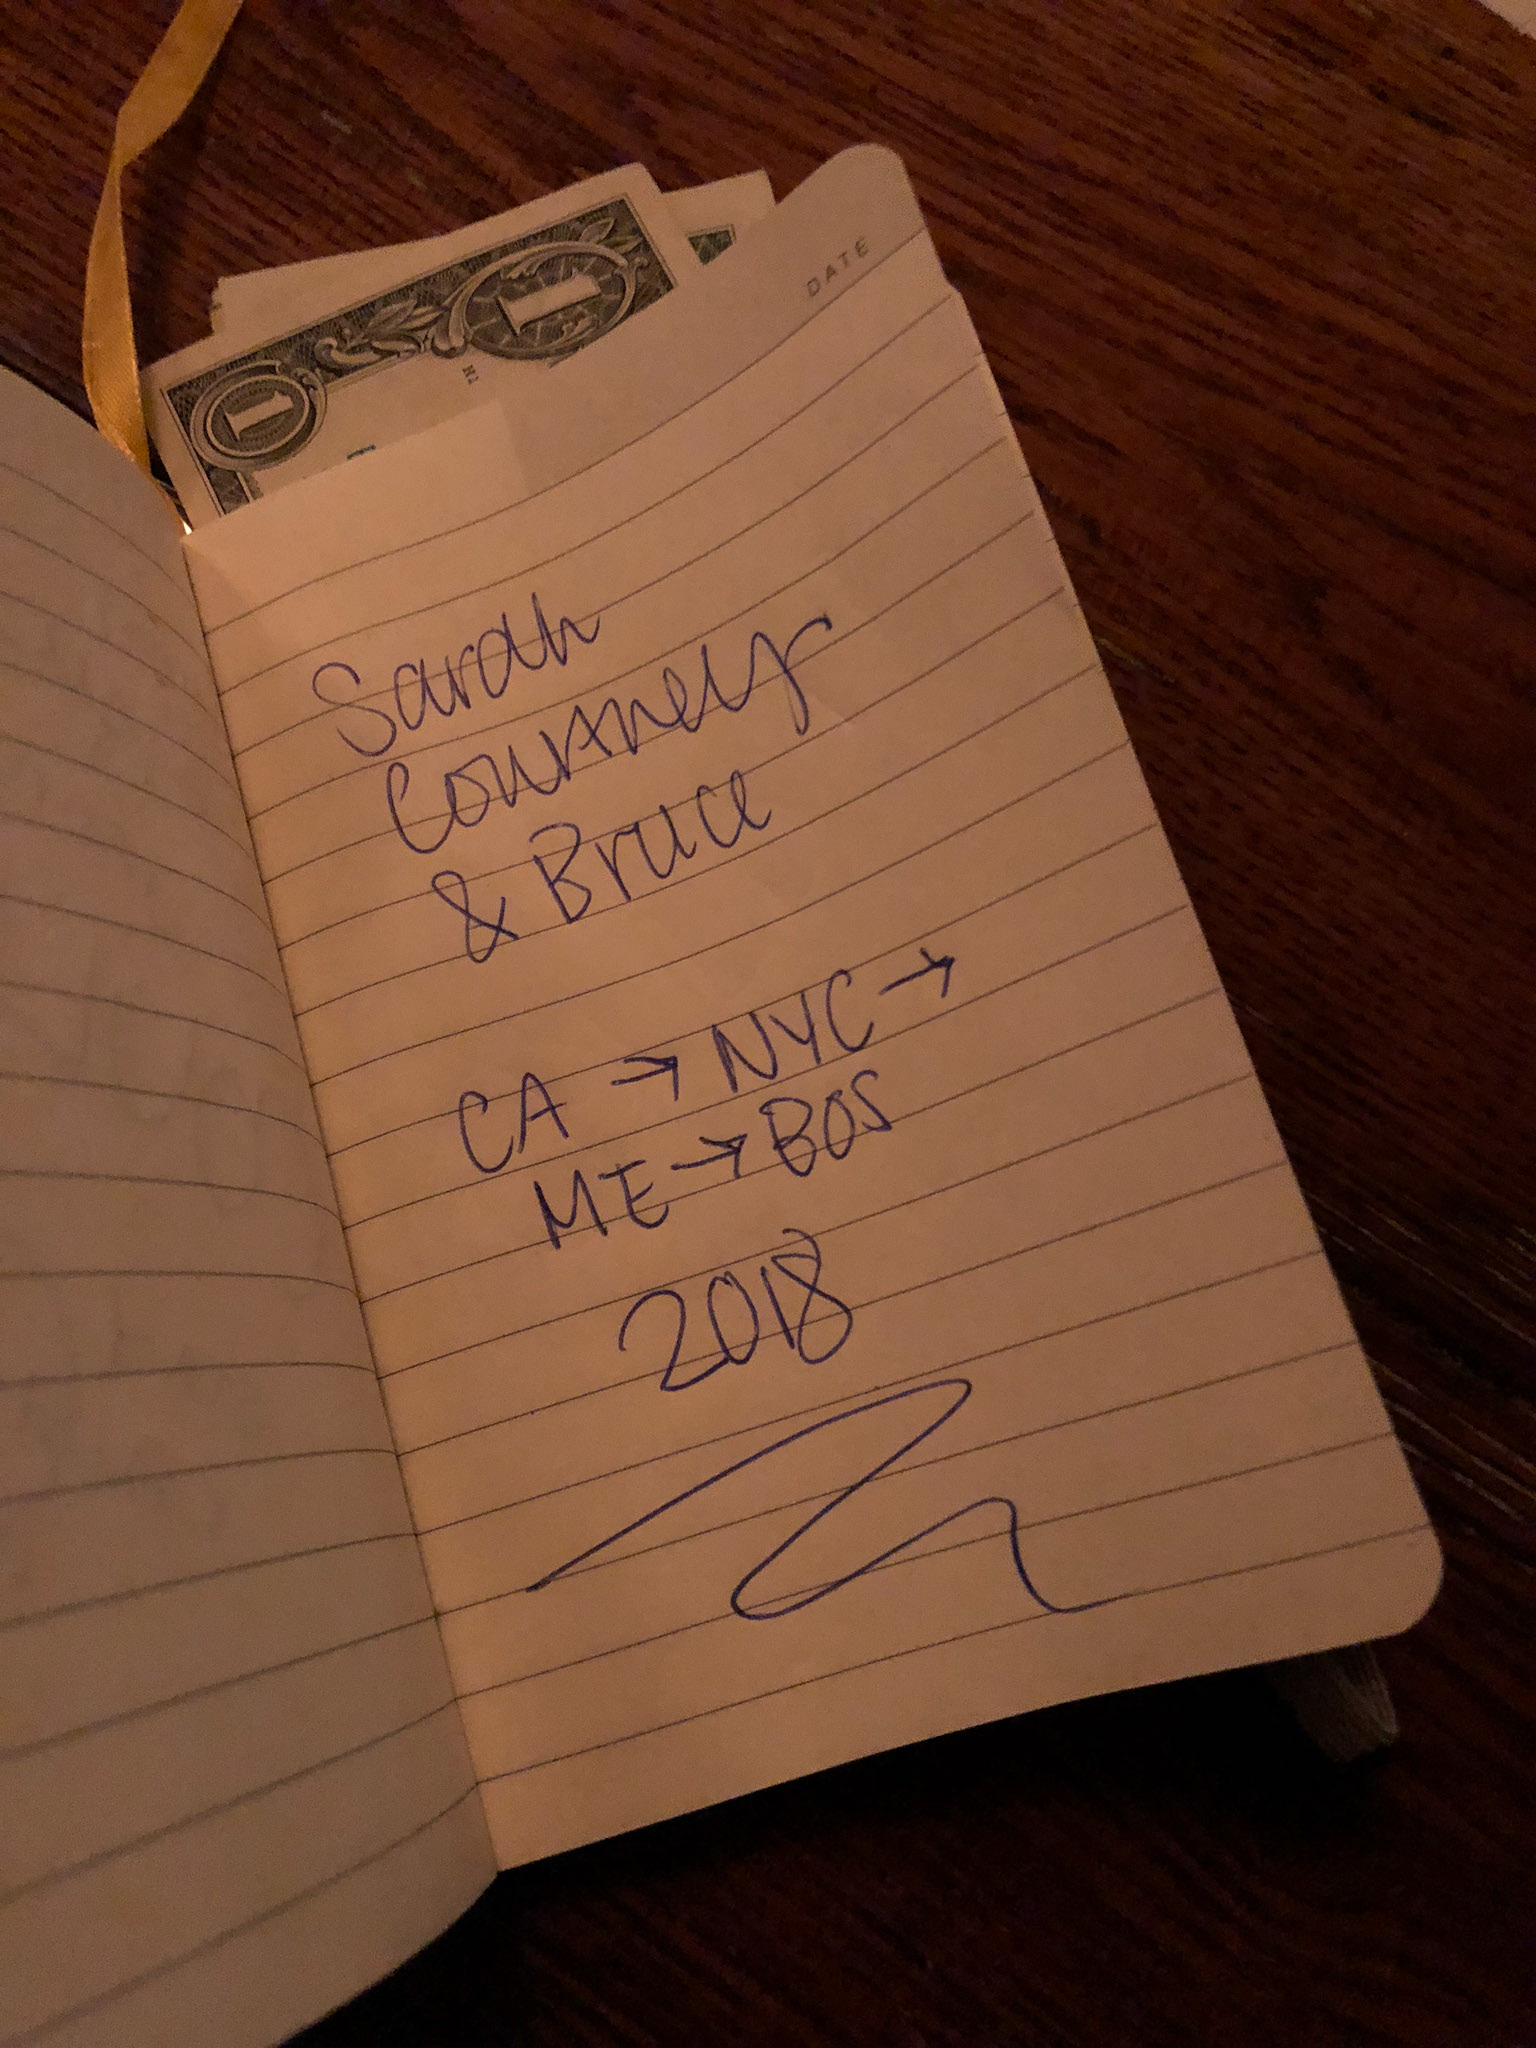 DATE
Sarah
Courtney
& Bruce
CA → NYC →
ME → BOS
2018